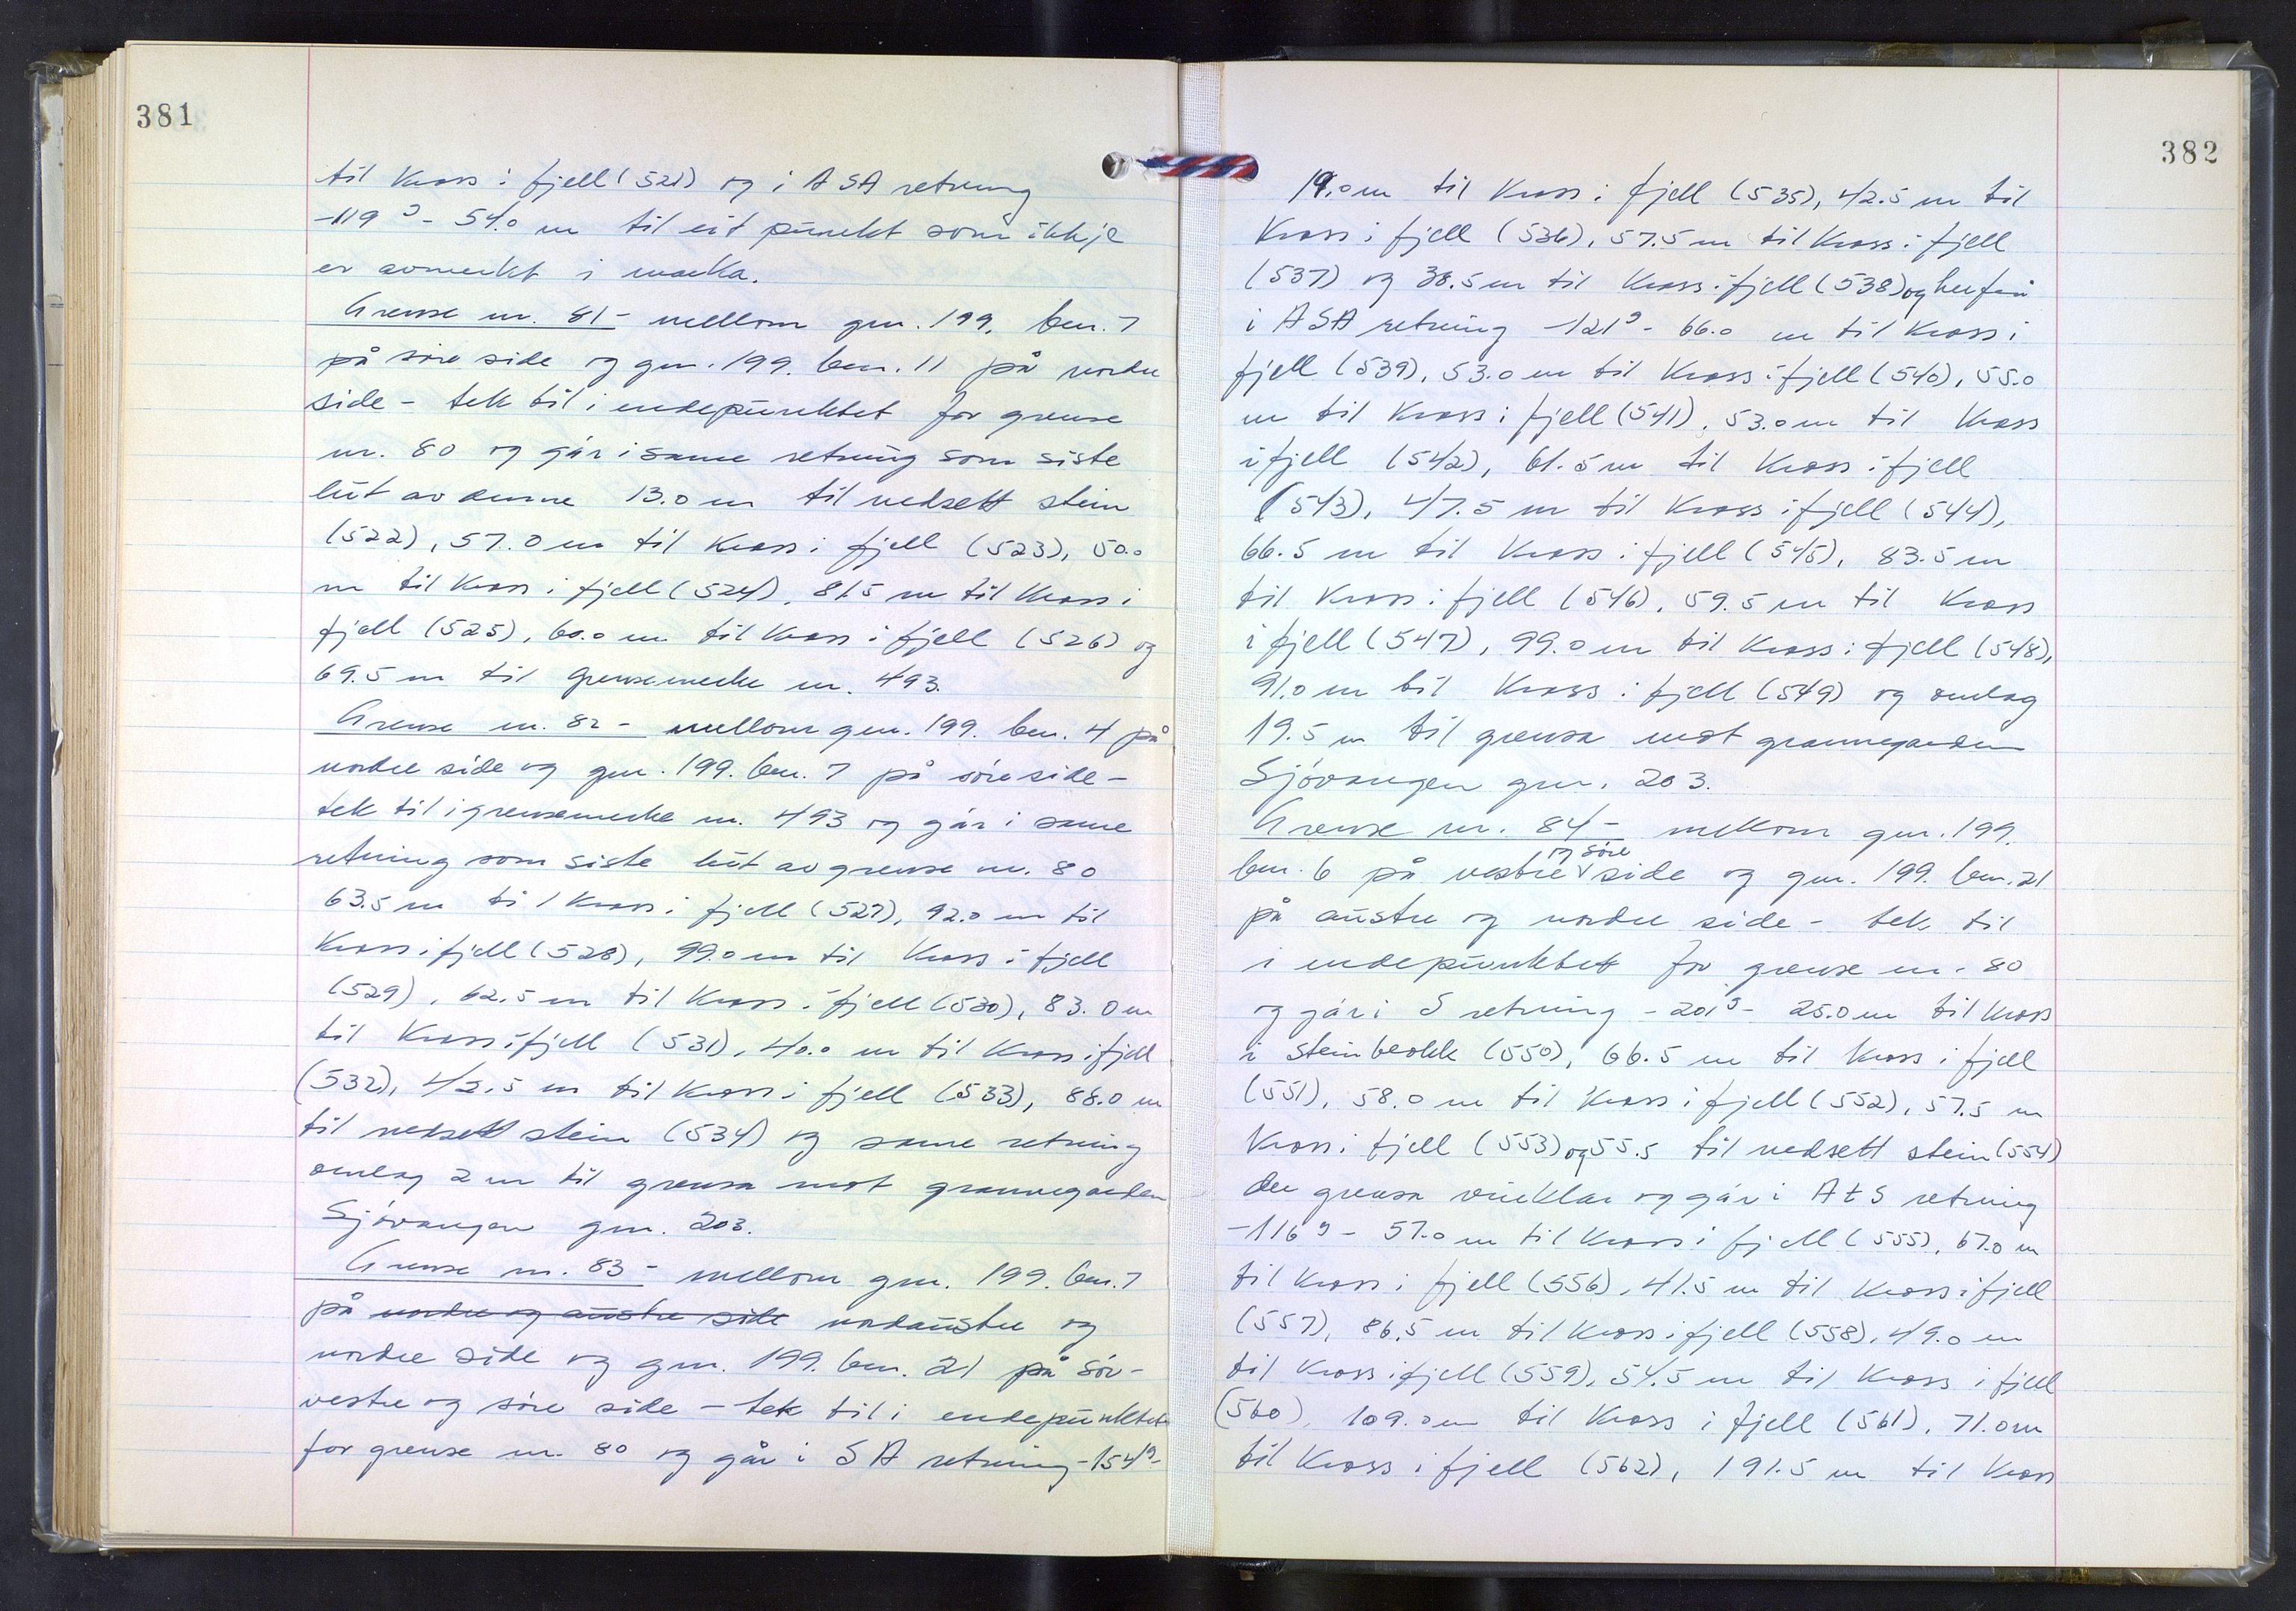 381
til kross i fjell (521) og i ASA retning
-119 g - 54.0 m til eit punkt som ikkje
er avmerkt i marka.
Grense nr. 81 - mellom gnr. 199. bnr. 7
på søre side og gnr. 199. bnr. 11 på nordre
side - tek til i endepunktet for grense
nr. 80 og går i same retning som siste
lut av denne 13.0 m til nedsett stein
(522), 57.0 m til kross i fjell (523), 50.0
m til kross i fjell (524), 81.5 m til kross i
fjell (525), 60.0 m til kross i fjell (526) og
69.5 m til grensemerke nr. 493.
Grense nr. 82 - mellom gnr. 199. bnr. 4 på
nordre side og gnr. 199. bnr. 7 på søre side -
tek til i grensemerke nr. 493 og går i same
retning som siste lut av grense nr. 80
63.5 m til kross i fjell (527), 92.0 m til
kross i fjell (528), 99.0 m til kross i fjell
(529), 62.5 m til kross i fjell (530), 83.0 m
til kross i fjell (531), 40.0 m til kross i fjell
(532), 42.5 m til kross i fjell (533), 88.0 m
til nedsett stein (534) og same retning
omlag 2 m til grensa mot grannegarden
Sjövangen gnr. 203.
Grense nr. 83 - mellom gnr. 199. bnr. 7
på nordre og austre side nordaustre og
nordre side og gnr. 199. bnr. 21 på sør-
vestre og søre side - tek til i endepunktet
for grense nr. 80 og går i SA retning -154 g-
382
19.0 m til kross i fjell (535), 42.5 m til
kross i fjell (536), 57.5 m til kross i fjell
(537) og 38.5 m til kross i fjell (538) og herfrå
i ASA retning -121 g - 66.0 m til kross i
fjell (539), 53.0 m til kross i fjell (540), 55.0
m til kross i fjell (541), 53.0 m til kross
i fjell (542), 61.5 m til kross i fjell
(543), 47.5 m til kross i fjell (544),
66.5 m til kross i fjell (545), 83.5 m
til kross i fjell (546), 59.5 m til kross
i fjell (547), 99.0 m til kross i fjell (548),
91.0 m til kross i fjell (549) og omlag
19.5 m til grensa mot grannegarden
Sjövangen gnr. 203.
Grense nr. 84 - mellom gnr. 199.
bnr. 6 på vestre og søre side og gnr. 199. bnr. 21
på austre og nordre side - tek til
i endepunktet for grense nr. 80
og går i S retning - 201 g - 25.0 m til kross
i steinblokk (550), 66.5 m til kross i fjell
(551), 58.0 m til kross i fjell (552), 57.5 m
kross i fjell (553) og 55.5 til nedsett stein (554)
der grensa vinklar og går i AtS retning
-116 g - 57.0 m til kross i fjell (555), 67.0 m
til kross i fjell (556), 41.5 m til kross i fjell
(557), 86.5 m til kross i fjell (558), 49.0 m
til kross i fjell (559), 54.5 m til kross i fjell
(560), 109.0 m til kross i fjell (561), 71.0 m
til kross i fjell (562), 191.5 m til kross